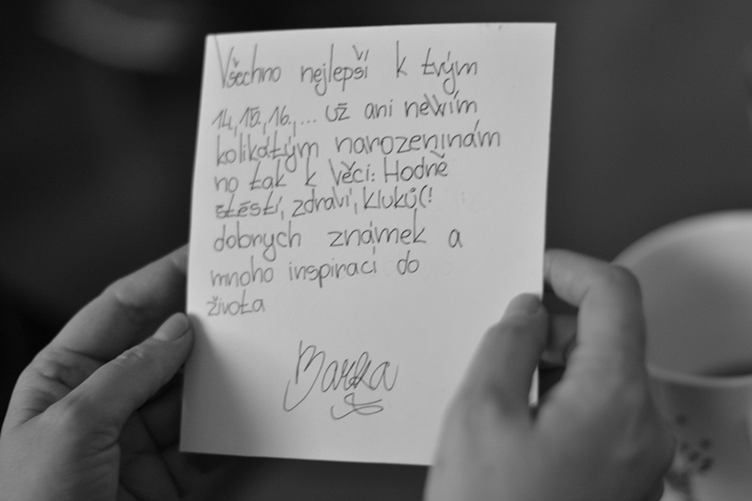 Všechno nejlepší k tvým
14,15,16,... už ani nevím
kolikátým narozeninám
no tak k věci: Hodně
štěstí, zdraví, kluků(!
dobrych známek a
mnoho inspirací do
života
Barka